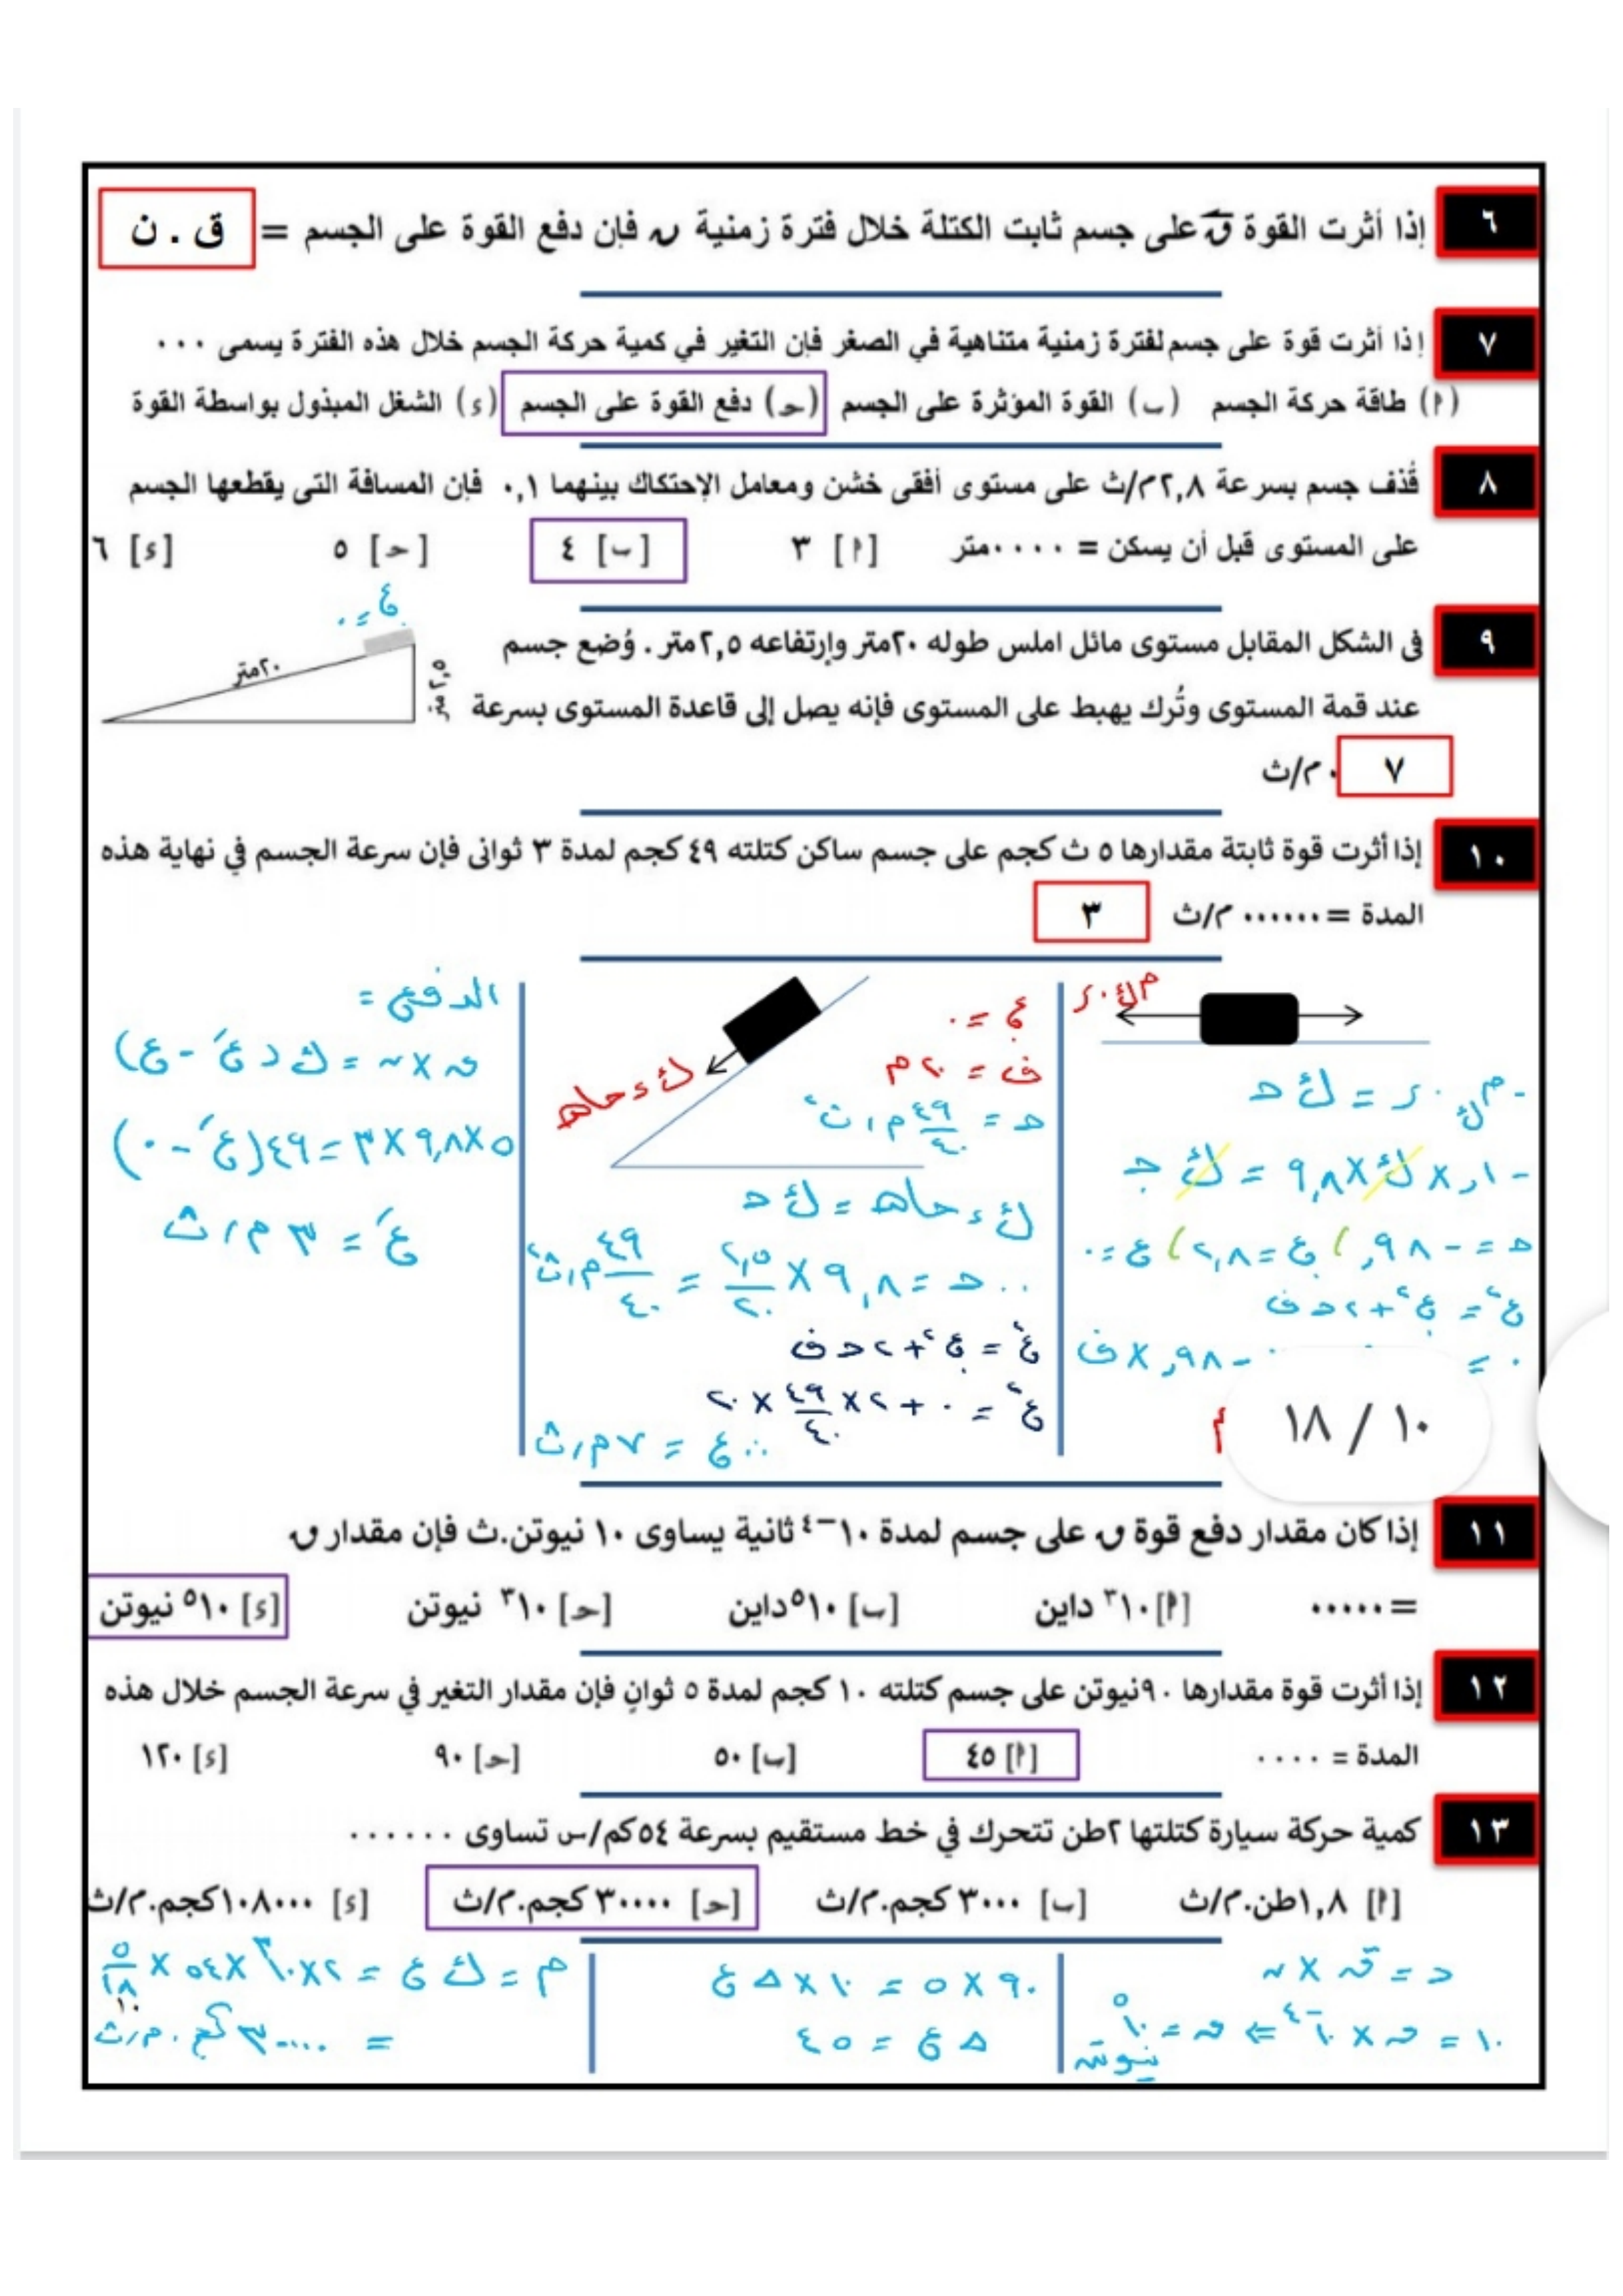 ٦ إذا أثرت القوة ق على جسم ثابت الكتلة خلال فترة زمنية ن فإن دفع القوة على الجسم = ق . ن
٧ إذا أثرت قوة على جسم لفترة زمنية متناهية في الصغر فإن التغير في كمية حركة الجسم خلال هذه الفترة يسمى ...
(أ) طاقة حركة الجسم (ب) القوة المؤثرة على الجسم (حـ) دفع القوة على الجسم (ء) الشغل المبذول بواسطة القوة
٨ قُذف جسم بسرعة ٢,٨م/ث على مستوى أفقى خشن ومعامل الإحتكاك بينهما ٠,١ فإن المسافة التى يقطعها الجسم
على المستوى قبل أن يسكن = ٠٠٠٠متر [أ] ٣ [ب] ٤ [حـ] ٥ [ء] ٦
ع.=٠
٩ فى الشكل المقابل مستوى مائل املس طوله ٢٠متر وإرتفاعه ٢,٥متر . وُضع جسم
٢٠متر
٢,٥متر
عند قمة المستوى وتُرك يهبط على المستوى فإنه يصل إلى قاعدة المستوى بسرعة
٧ م/ث
١٠ إذا أثرت قوة ثابتة مقدارها ٥ ث كجم على جسم ساكن كتلته ٤٩ كجم لمدة ٣ ثوانى فإن سرعة الجسم في نهاية هذه
المدة = ٠٠٠٠٠٠ م/ث ٣
م ك . ر
- م ك . ر = ك حـ
- ٠,١ × ك × ٩,٨ = ك جـ
حـ = - ٠,٩٨ ) ع. = ٢,٨ ) ع = ٠
ع² = ع.² + ٢ حـ ف
٠ = - ٠,٩٨ × ف
ع. = ٠
ف = ٢٠ م
حـ = ٤٩/٤٠ م/ث²
ك ء حاهـ
ك ء حاهـ = ك حـ
∴ حـ = ٩,٨ × ٢,٥/٢٠ = ٤٩/٤٠ م/ث²
ع² = ع.² + ٢ حـ ف
ع² = ٠ + ٢ × ٤٩/٤٠ × ٢٠
∴ ع = ٧ م/ث
الدفع =
ق × ن = ك ( عَ - ع )
٥ × ٩,٨ × ٣ = ٤٩ ( عَ - ٠ )
عَ = ٣ م/ث
١٠ / ١٨
١١ إذا كان مقدار دفع قوة ق على جسم لمدة ١٠⁻⁴ ثانية يساوى ١٠ نيوتن.ث فإن مقدار ق
= ٠٠٠٠٠ [أ] ١٠³ داين [ب] ١٠⁵ داين [حـ] ١٠³ نيوتن [ء] ١٠⁵ نيوتن
١٢ إذا أثرت قوة مقدارها ٩٠نيوتن على جسم كتلته ١٠ كجم لمدة ٥ ثوانٍ فإن مقدار التغير في سرعة الجسم خلال هذه
المدة = ٠٠٠٠ [أ] ٤٥ [ب] ٥٠ [حـ] ٩٠ [ء] ١٢٠
١٣ كمية حركة سيارة كتلتها ٢طن تتحرك في خط مستقيم بسرعة ٥٤كم/س تساوى ٠٠٠٠٠٠
[أ] ١,٨طن.م/ث [ب] ٣٠٠٠ كجم.م/ث [حـ] ٣٠٠٠٠ كجم.م/ث [ء] ١٠٨٠٠٠كجم.م/ث
د = ق × ن
١٠ = ق × ١٠⁻⁴ ⇐ ق = ١٠⁵
نيوتن
٩٠ × ٥ = ١٠ × Δ ع
Δ ع = ٤٥
م = ك ع = ٢ × ١٠³ × ٥٤ × ٥/١٨
= ٣٠٠٠٠ كجم . م/ث